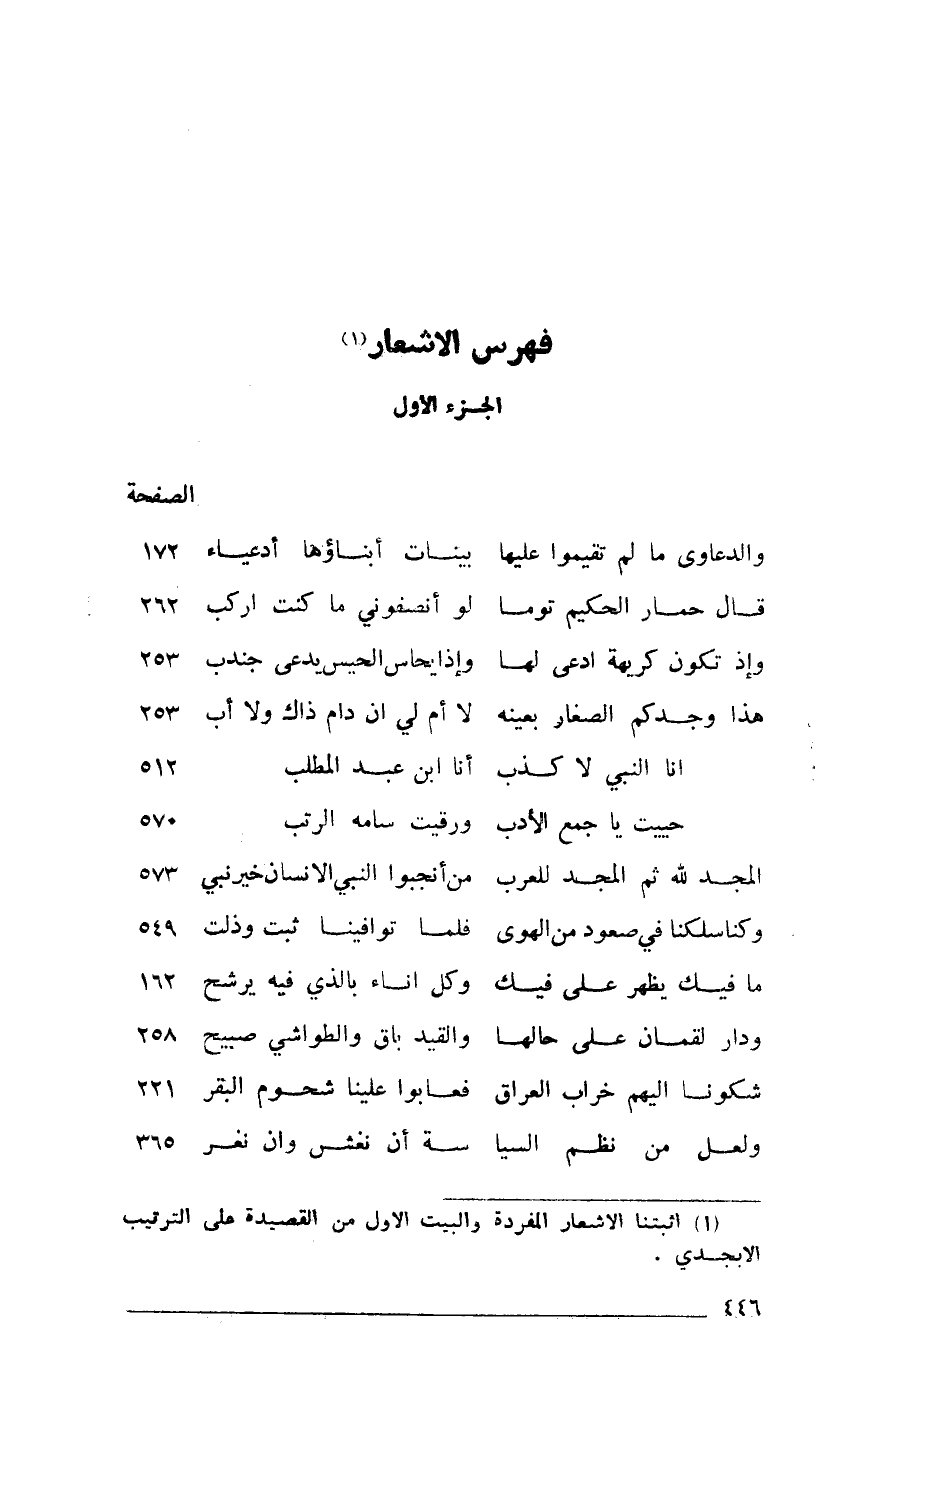 فهرس الاشعار (١)
الجـزء الاول
الصفحة
والدعاوى ما لم تقيموا عليها بينات أبناؤها أدعياء ١٧٢
قال حمار الحكيم توما لو أنصفوني ما كنت اركب ٢٦٢
وإذ تكون كريهة ادعى لها وإذا يحاس الحيس يدعى جندب ٢٥٣
هذا وجدكم الصغار بعينه لا أم لي ان دام ذاك ولا أب ٢٥٣
انا النبي لا كذب أنا ابن عبد المطلب ٥١٢
حييت يا جمع الأدب ورقيت سامه الرتب ٥٧٠
المجد لله ثم المجد للعرب من أنجبوا النبي الانسان خير نبي ٥٧٣
وكنا سلكنا في صعود من الهوى فلما توافينا ثبت وذلت ٥٤٩
ما فيك يظهر على فيك وكل اناء بالذي فيه يرشح ١٦٢
ودار لقمان على حالها والقيد باق والطواشي صبيح ٢٥٨
شكونا اليهم خراب العراق فعابوا علينا شحوم البقر ٢٢١
ولعل من نظم السيا سة أن نغش وان نغر ٣٦٥
(١) اثبتنا الاشعار المفردة والبيت الاول من القصيدة على الترتيب
الابجدي .
٤٤٦